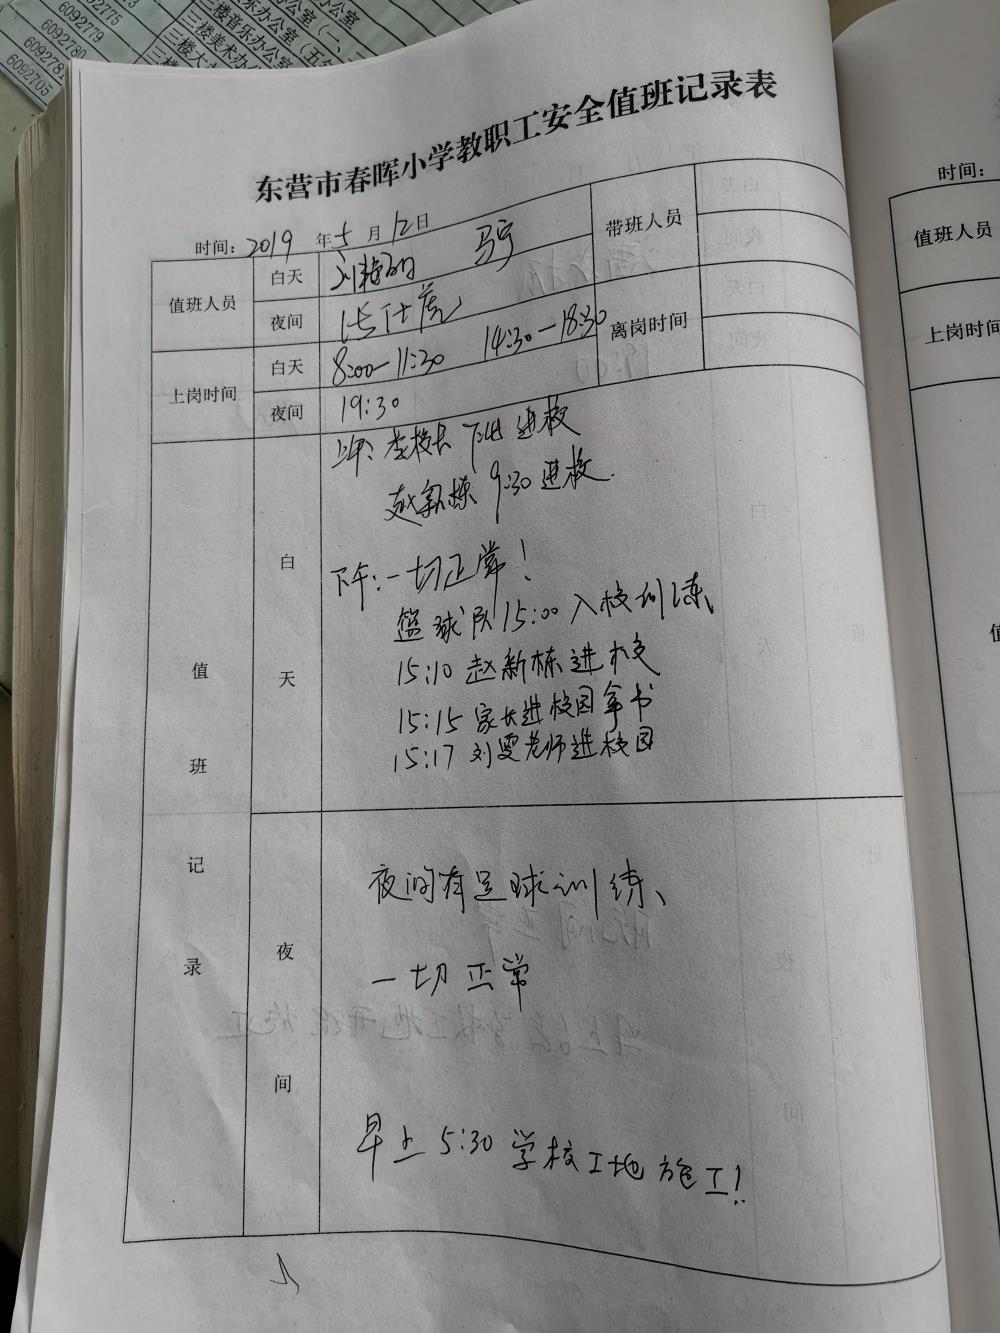 6092775
6092779
6092780
6092781
6092705
三楼音乐办公室（一、
三楼美术办公室（五
东营市春晖小学教职工安全值班记录表
时间：2019年5月12日
值班人员 白天 马宇 带班人员
夜间
上岗时间 白天 8:00—11:30 14:30—18:30 离岗时间
夜间 19:30
值班记录
白天
上午：李校长 进校
赵新栋 9:30 进校.
下午：一切正常！
篮球队15:00入校训练、
15:10 赵新栋进校
15:15 家长进校园拿书
15:17 刘雯老师进校园
夜间
夜间有足球训练、
一切正常
早上5:30 学校工地施工！
时间：
值班人员
上岗时间